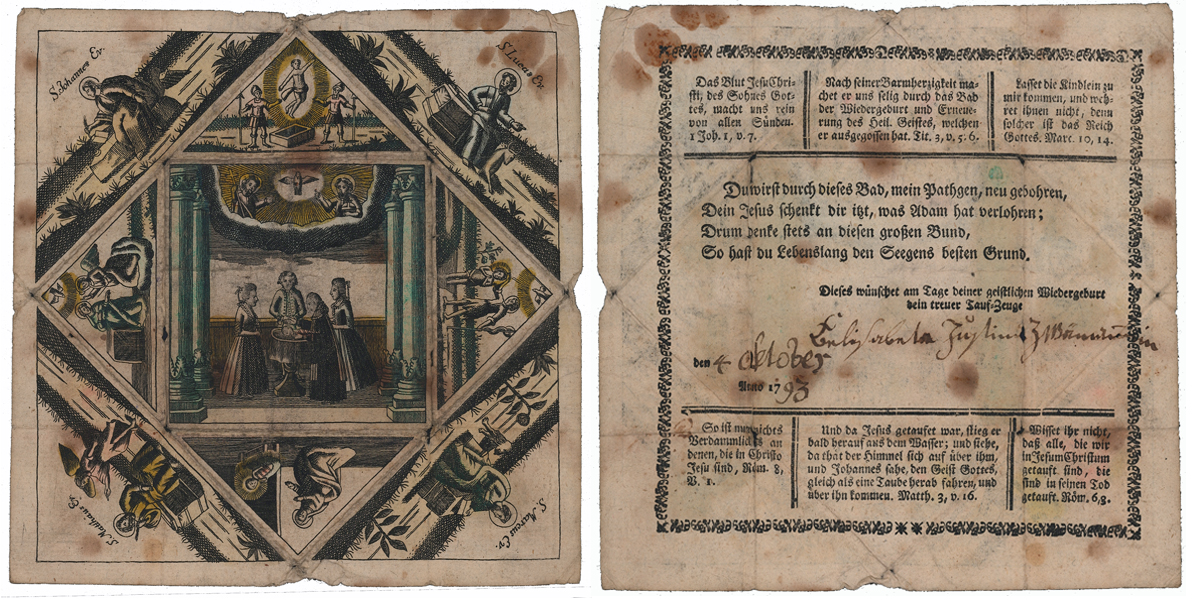 S. Johannes Ev.
S. Lucas Ev.
S. Mathäus Ev.
S. Marcus Ev.
Das Blut JesuChri-
sti, des Sohnes Got-
tes, macht uns rein
von allen Sünden.
1 Joh. 1, v. 7.
Nach seiner Barmherzigkeit ma-
chet er uns selig durch das Bad
der Wiedergeburt und Erneue-
rung des Heil. Geistes, welchen
er ausgegossen hat. Tit. 3, v. 5. 6.
Lasset die Kindlein zu
mir kommen, und weh-
ret ihnen nicht, denn
solcher ist das Reich
Gottes. Marc. 10, 14.
Du wirst durch dieses Bad, mein Pathgen, neu gebohren,
Dein Jesus schenkt dir itzt, was Adam hat verlohren;
Drum denke stets an diesen großen Bund,
So hast du Lebenslang den Seegens besten Grund.
Dieses wünschet am Tage deiner geistlichen Wiedergeburt
dein treuer Tauf-Zeuge
Justina
den 4 October
Anno 1793
So ist nun nichts
Verdammlichs an
denen, die in Christo
Jesu sind, Röm. 8,
V. 1.
Und da Jesus getaufet war, stieg er
bald herauf aus dem Wasser; und siehe,
da thät der Himmel sich auf über ihm,
und Johannes sahe, den Geist Gottes,
gleich als eine Taube herab fahren, und
über ihn kommen. Matth. 3, v. 16.
Wisset ihr nicht,
daß alle, die wir
in JesumChristum
getauft sind, die
sind in seinen Tod
getauft. Röm. 6,3.